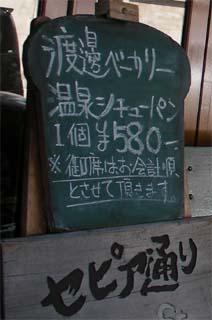 渡邊ベーカリー
温泉シチューパン
1個 ¥580-
※御席はお会計順
とさせて頂きます。
セピア通り